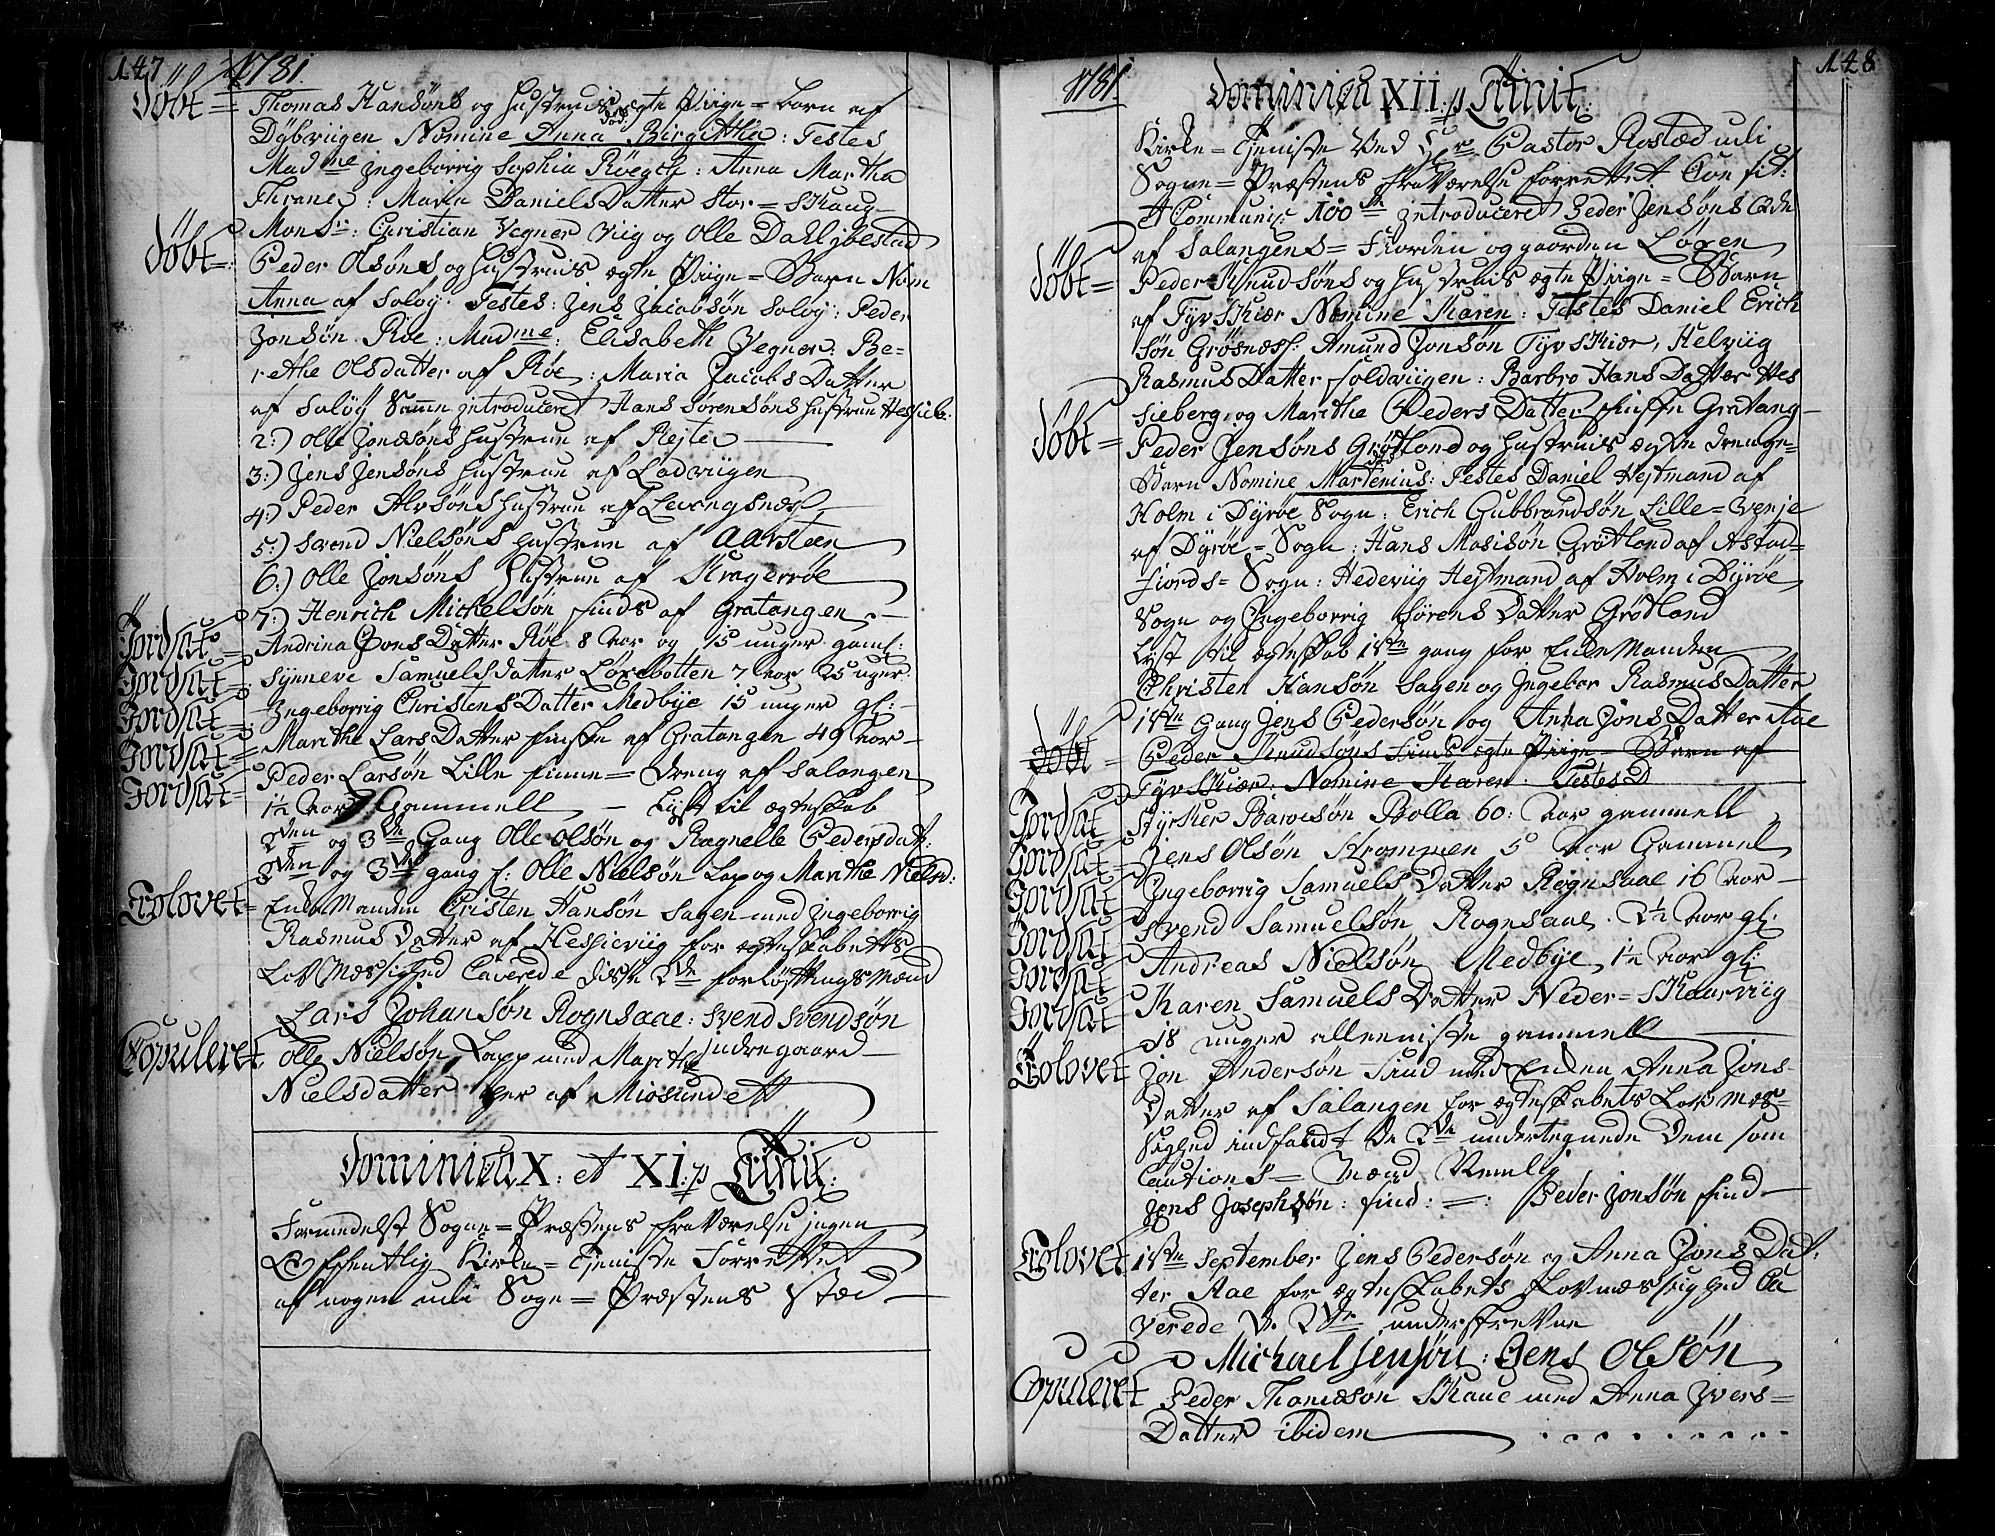 147 1781.
Döbt = Thomas Hansöns og Hustrues ægte Piige = barn af
Dybviigen Nomine Anna Birgitha : Testes
Mad me Ingeborrig Sophia : Anna Martha
Thrane : Maria Daniels Datter Stor = Skaug
Mons r : Christian Vegner Viig og Olle Dahl Jbestad
Döbt = Peder Olsöns og Hustrues ægte Piige = Barn Nom
Anna af Solöy : Testes : Jens Jacobsön Solöy : Peder
Jonsön Röe : Mad me : Elisabeth Vegner : Be=
rethe Olsdatter af Röe : Maria Jacobs Datter
af Solöy Samme introduceret Hans Sörensöns Hustrue
2:) Olle Jonæsöns Hustrue af
3:) Jens Jensöns Hustrue af Ladviigen
4:) Peder Alvsöns Hustrue af Levangsnæs
5:) Svend Nielsöns Hustrue af Aarsteen
6:) Olle Jonsöns Hustrue af Krageröe
7:) Henrich Michelsön Finds af Gratangen
Jordsat = Andrina Jons Datter Röe 8 Aar og 15 uuger gaml:
Jordsat = Synneve Samuels datter Löxebotten 7 Aar 25 uger
Jordsat = Ingeborrig Christens Datter Medbye 15 uuger gl:
Jordsat = Marithe Lars Datter Finske af Gratangen 49 Aar
Jordsat = Peder Larsön Lille Finne = Dreng af Salangen
1½ Aar Gammell — Lyst til ægteskab
2den og 3de Gang Olle Olsön og Ragnelle Pedersdat:
2den og 3de gang f: Olle Nielsön Lap og Marithe Nielsd:
Trolovet = Enke Manden Cristen Hansön Sagen med Ingeborrig
Rasmus Datter af Hessieviig for ægteskabetts
Lov Mæssighed Caverede disse 2de forlöftnings Mænd
Lars Johansön Rognsaae : Svend Svendsön
Indregaard
Copuleret Olle Nielsön Lapp med Marithe
Nielsdatter her af Miösundett
Dominica X : et XI : p Trinit :
Formedelst Sogne = Præstens fraværelse ingen
Offentlig Kirke = Tieniste Forrettet
af nogen udi Sogne = Præstens Stæd
1781 148
Dominica XII : p Trinit :
Kirke = Tieniste Ved Hr Pastor Rostæd udi
Sogne = Præstens fraværelse forrettet Con fit:
et Communic: 100 introduceret Peder Jensöns
af Salangens = Fiorden og gaarden Löxen
Döbt = Peder Knudsöns og Hustrues ægte Piige = Barn
af Tyvskiær Nomine Karen : Testes Daniel Erich
sön Grösnæss : Amund Jonsön Tyvskiær, Helviig
Rasmus Datter Foldviigen : Barbro Hans Datter Hes
sieberg, og Marithe Peders Datter Finske Gratang
Döbt = Peder Jensöns Grötland og Hustrues ægte Drenge=
Barn Nomine Martenius : Testes Daniel Hejtmand af
Holm i Dyröe Sogn : Erich Gubbrandsön Lille = Venje
af Dyröe = Sogn : Hans Mosisön Grötland af Astad=
fiords = Sogn : Hedeviig Hejtmand af Holm i Dyröe
Sogn og Ingeborrig Sörens Datter Grötland
Lyst til ægteskab 1ste gang for Enke Manden
Christen Hansön Sagen og Ingebor Rasmus Datter
1ste Gang Jens Pedersön og Anna Jons Datter Aae
Döbt = Peder Knudsöns Finds ægte Piige = Barn af
Tyvskiær, Nomine Karen. Testes D
Jordsat Styrker Barosön Bolla 60: Aar gammell
Jordsat Jens Olsön Krommen 5 Aar Gammel
Jordsat Ingeborrig Samuels Datter Rognsaae 16 Aar
Jordsat Svend Samuelsön Rognsaae 2½ Aar gl:
Jordsat Andreas Nielsön Medbye 1½ Aar gl:
Jordsat Karen Samuels Datter Neder = Skaarviig
18 uuger alleeniste gammell
Trolovet Jon Andersön Find med Enken Anna Jons
Datter af Salangen for ægteskabets Lov Mæs=
sighed indfandt de 2de undertegnede Dem som
Cautions = Mænd Nemlig
Jens Josephsön : find : = : Peder Jonsön find
Trolovet 1ste September Jens Pedersön og Anna Jons Dat=
ter Aae for ægteskabets Lovmæssighed Ca
verede de 2de underskrevne
Michael Jensön : Jens Olsön
Copuleret Peder Thomæsön Skaue med Anna Ivers=
Datter ibidem